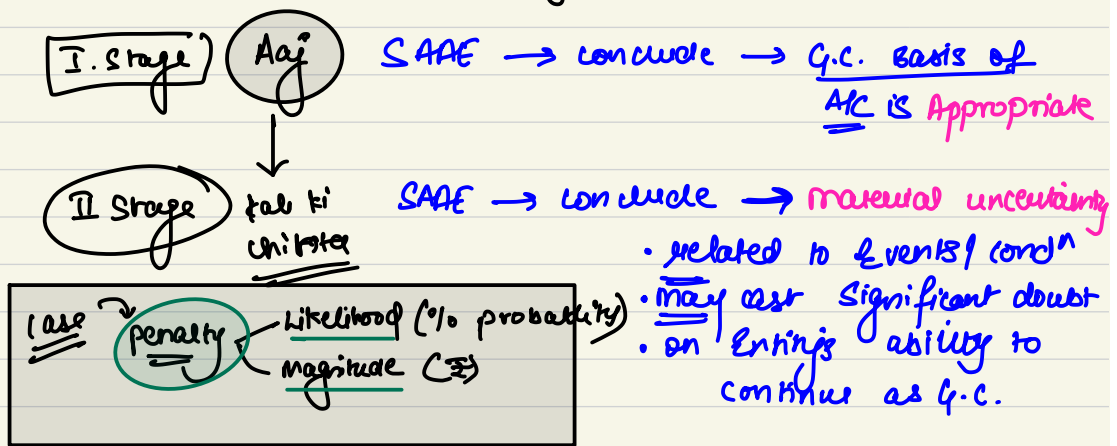 I. Stage Aaj SAAE → conclude → G.C. Basis of
A/C is Appropriate
II Stage kal ki SAAE → conclude → material uncertainty
chinta
• related to Events/condⁿ
• may cast significant doubt
• on Entity's ability to
continue as G.C.
case penalty Likelihood (% probability)
magnitude (₹)